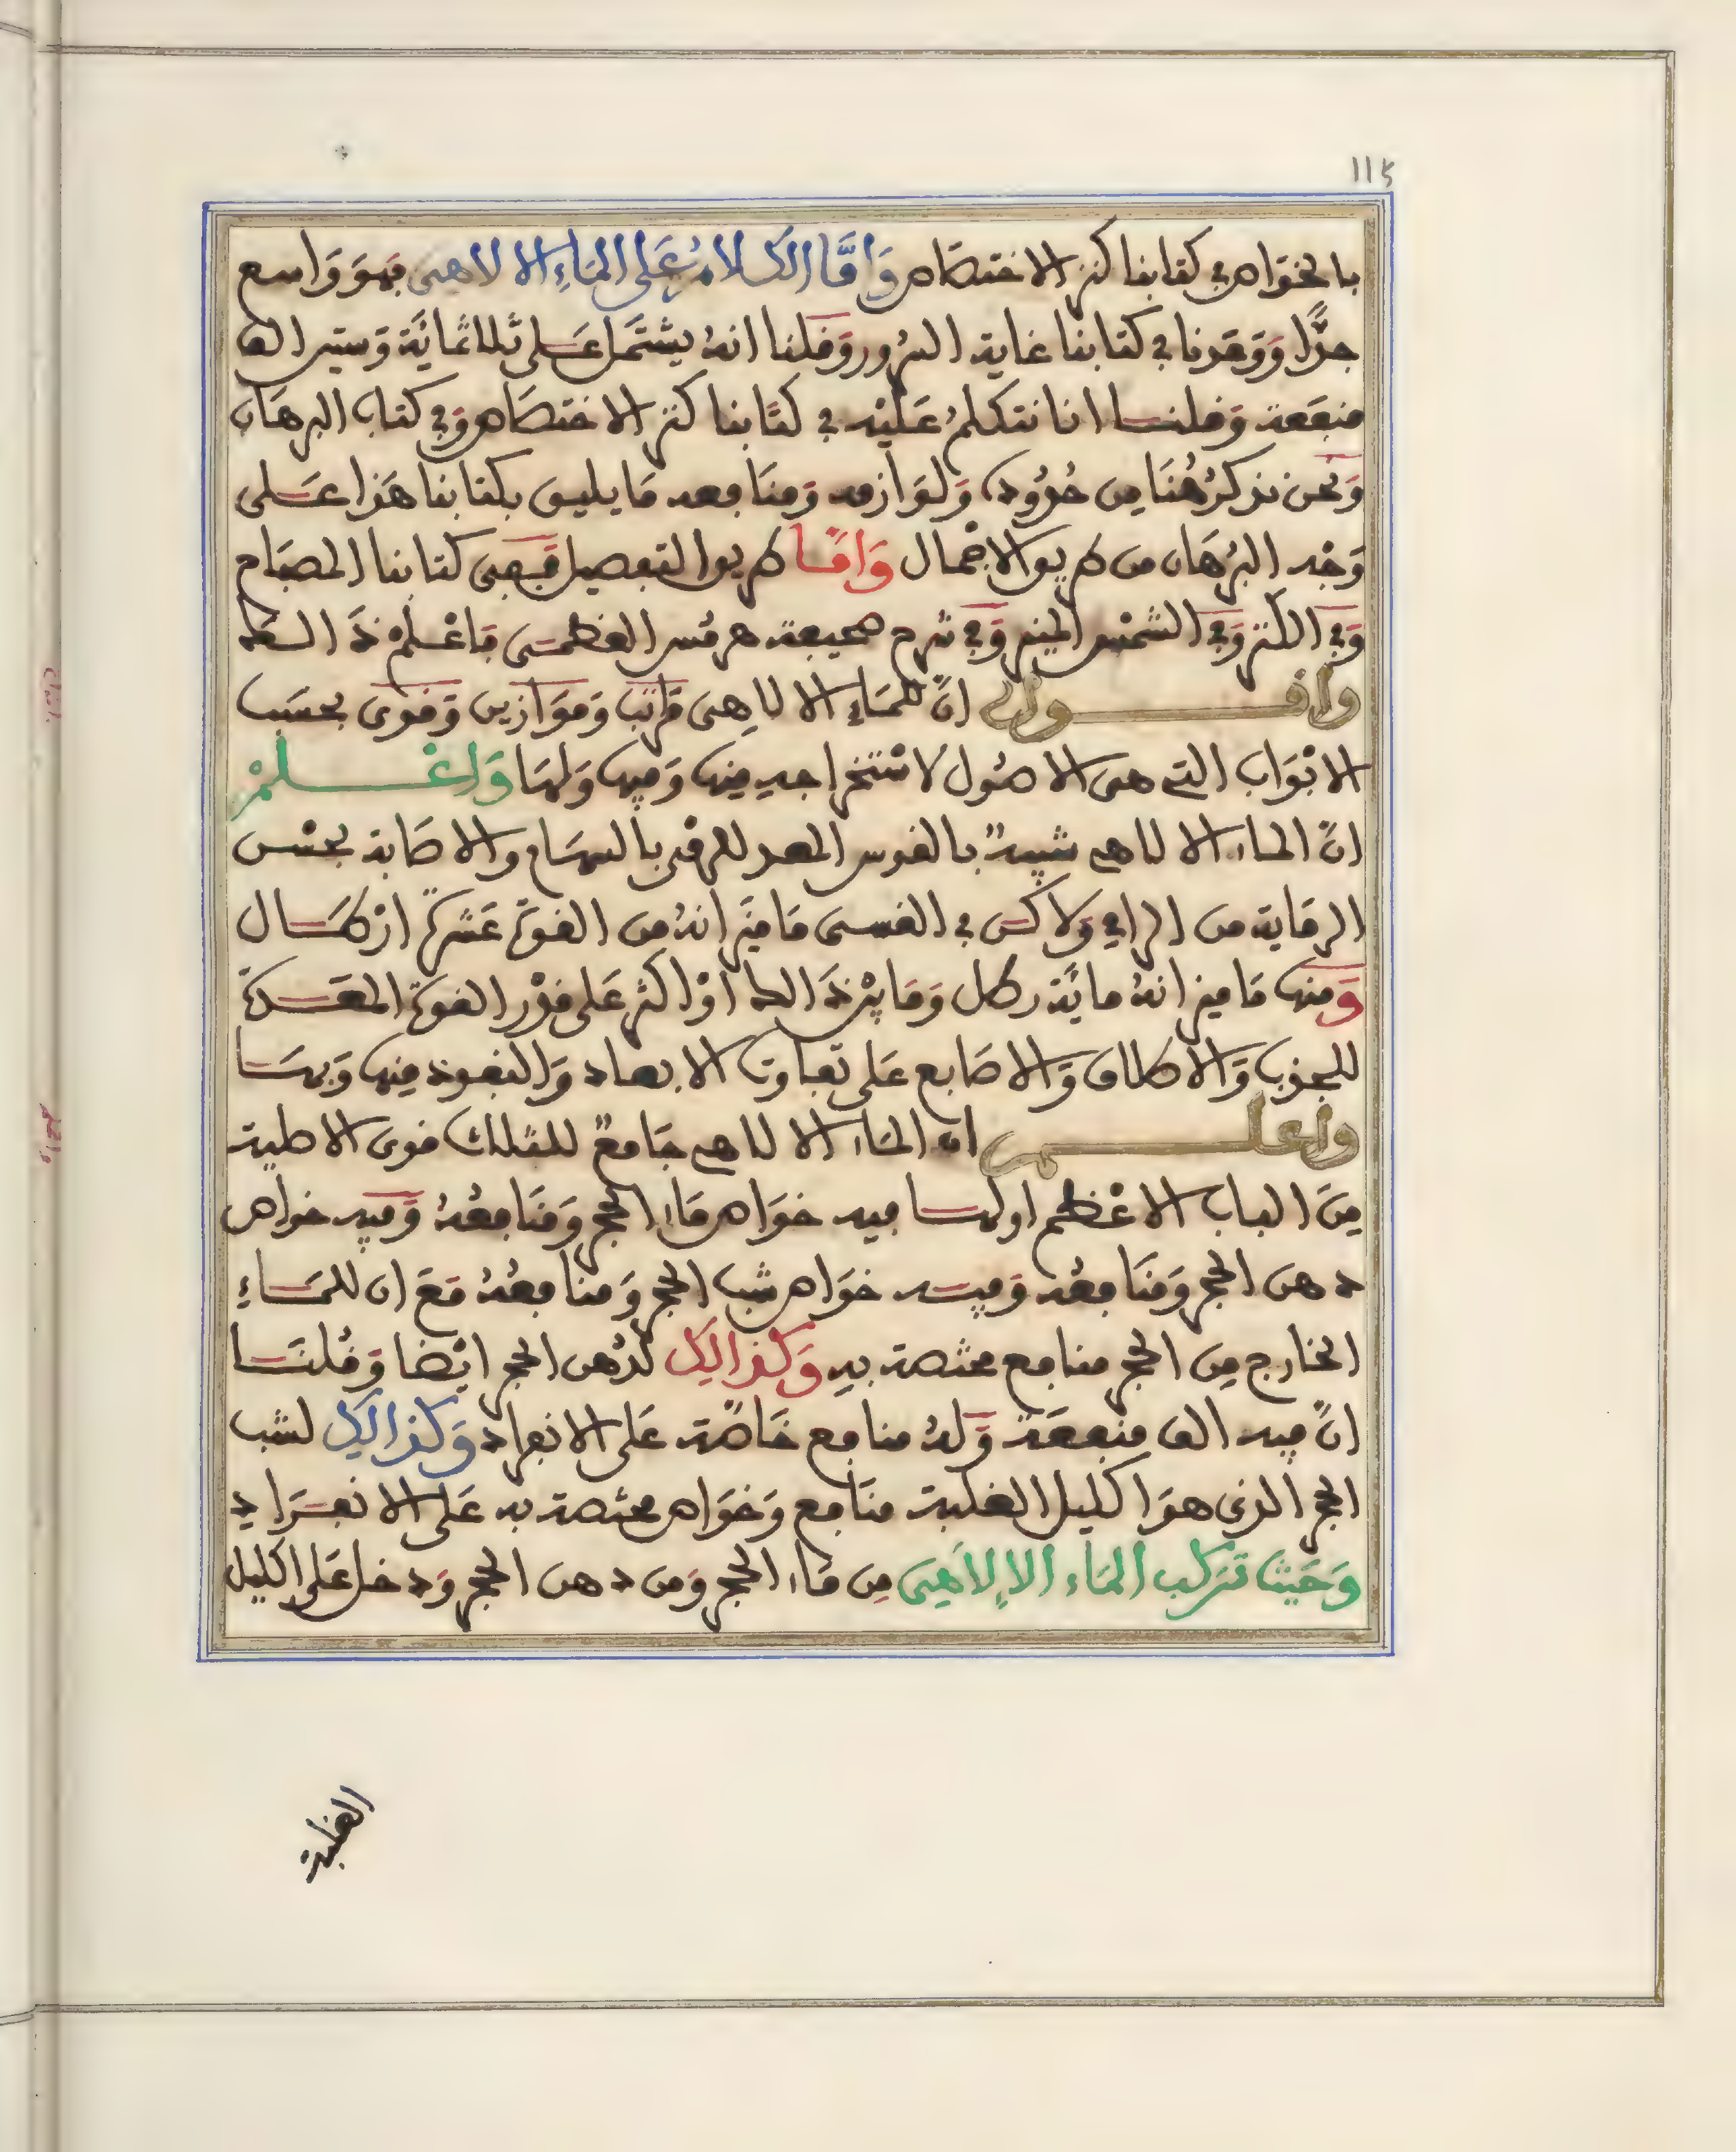 115
بالخوَاص في كتابنا كنز الاختصَاص وَامَّا الكَلامُ عَلى المَاءِ الالاهى فهوَ وَاسع
جدًّا وَوَعَدنا في كتابنا غاية السُرور وَقلنا انهُ يشتمَل عَلى ثلاثمائَة وَستين الف
منفعَة وَقلنا انا نتكلمُ عَليْه في كتَابنا كنز الاختصَاص وَفي كتاب البرهَان
وَنحن نذكرُ هُنَا من حُدُوده وَلوَازمه وَمنَافعه مَا يليق بكتابنا هَذا عَلى
وَجْه البُرهَان من طريق الاجْمال وَامَّا طريق التفصيل فَفى كتابنا المصبَاح
وَفي الكنز وَفي الشمْس المنير وَفي شرح صحيفة هرمُس العُظمى فاعْلمْ ذَالك
وَاقول انَّ للمَاءِ الالاهى مَراتبَ وَمَوَازين وَقوى بحسَب
الابْوَاب التي هى الاصُول لاسْتخراجه منها وَفيها وَلهَا وَاعْلمْ
انَّ الماء الالاهي شبيهٌ بالقوس المعد للرمْى بالسهَام والاصَابة بحسْن
الرمَاية من الرامي وَلاكن في القسى مَا ميزانهُ من القوة عَشرَة ارْطَال
وَمنها مَا ميزانهُ مائَة رطل وَمَا بيْن ذَالك اوْ اكثر عَلى قدْر القوة المعَدة
للجذب وَالاطلاق وَالاصَابع عَلى تفاوت الابعاد وَالنفوذ منها وَبهَا
واعلم ان المَاء الالاهي جَامعٌ للمثلث قوى الاطية
منَ الباب الاعْظم اولهَا فيه خوَاص مَاء الحجر وَمنَافعُهُ وَفيه خوَاص
دهن الحجر وَمنَافعُه وَفيه خوَاص شب الحجر وَمنافعُهُ مَعَ ان للمَاءِ
الخارج من الحجر منافع مختصة بهِ وَكذالك لدُهن الحجر ايْضا وَقُلنَا
انَّ فيه الف منفعَة وَلهُ منافع خَاصَّة عَلى الانفراد وَكذالك لشب
الحجر الذى هوَ اكليل الغلبة منَافع وَخوَاص مختصة به عَلى الانفرَادِ
وَحَيْثُ تركب المَاء الالاهى من مَاء الحجر وَمن دهن الحجر وَدخل عَلى اكليل
الغلبة